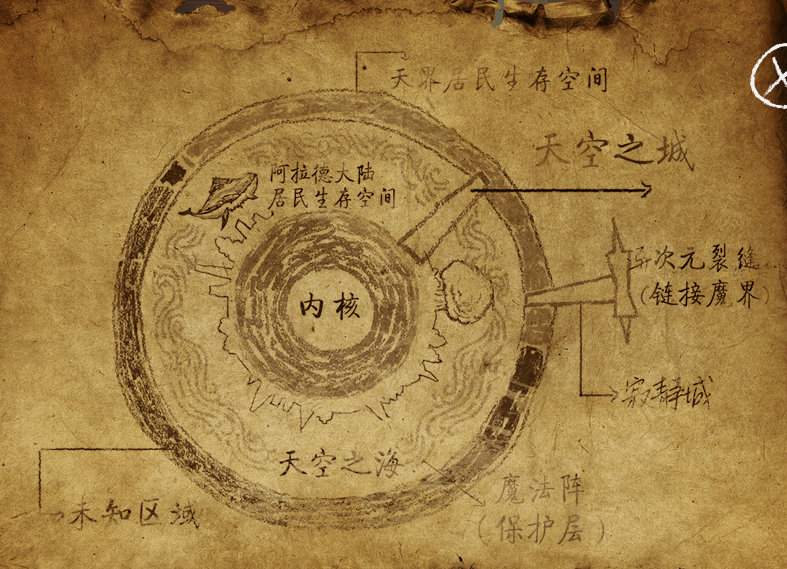 天界居民生存空间
天空之城
阿拉德大陆
居民生存空间
异次元裂缝
(链接魔界)
内核
寂静城
天空之海
魔法阵
(保护层)
未知区域